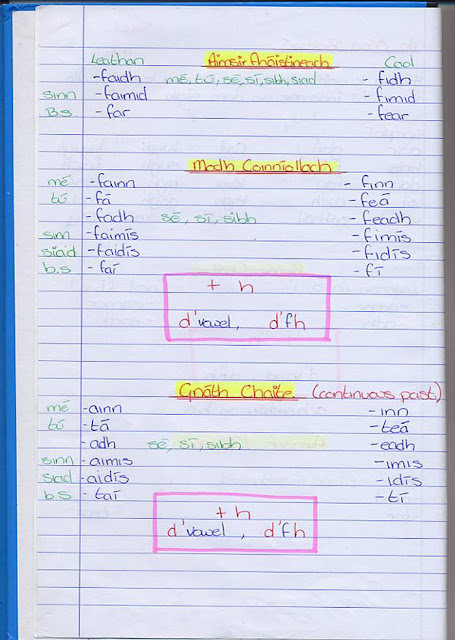 Leathan Aimsir Fháistineach Caol
-faidh mé, tú, sé, sí, sibh, siad - fidh
sinn - faimid - fimid
B.S - far - fear
Modh Coinníollach
mé -fainn - finn
tú -fá - feá
-fadh sé, sí, sibh - feadh
sinn -faimís - fimís
siad -faidís - fidís
b.s - faí - fí
+ h
d'vowel, d'fh
Gnáth Chaite (continuous past)
mé -ainn -inn
tú -tá -teá
-adh sé, sí, sibh -eadh
sinn -aimis -imis
siad -aidís -idís
b.s - taí - tí
+ h
d'vowel, d'fh